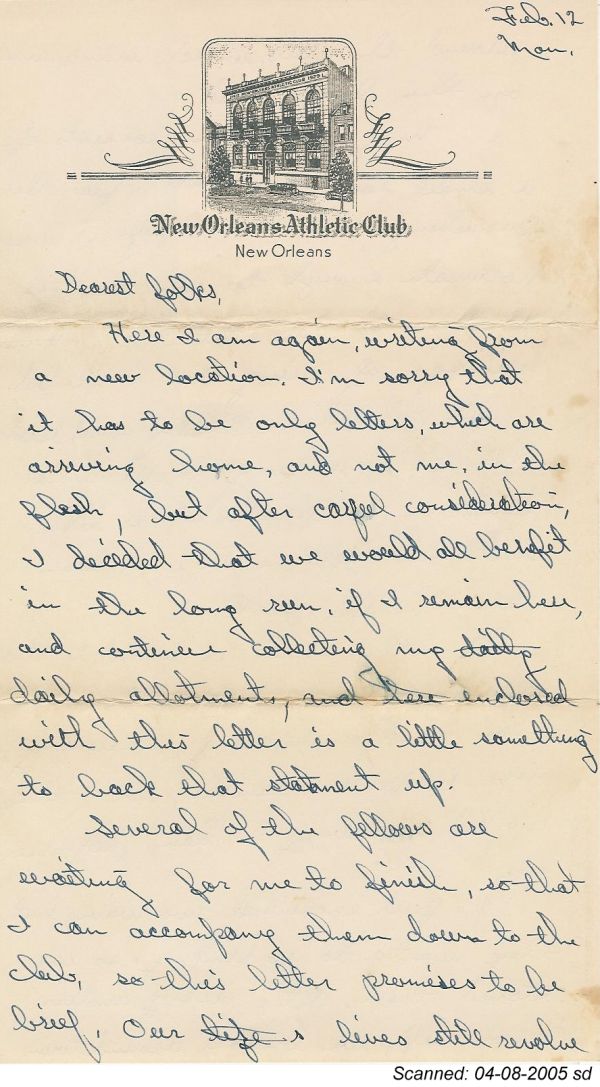 Feb. 12
Mon.
New Orleans Athletic Club
New Orleans
Dearest folks,
Here I am again, writing from
a new location. I'm sorry that
it has to be only letters, which are
arriving home, and not me, in the
flesh, but after careful consideration,
I decided that we would all benefit
in the long run, if I remain here,
and continue collecting my daily
daily allotments, and here enclosed
with this letter is a little something
to back that statment up.
Several of the fellows are
waiting for me to finish, so that
I can accompany them down to the
club, so this letter promises to be
brief. Our life s lives still revolve
Scanned: 04-08-2005 sd